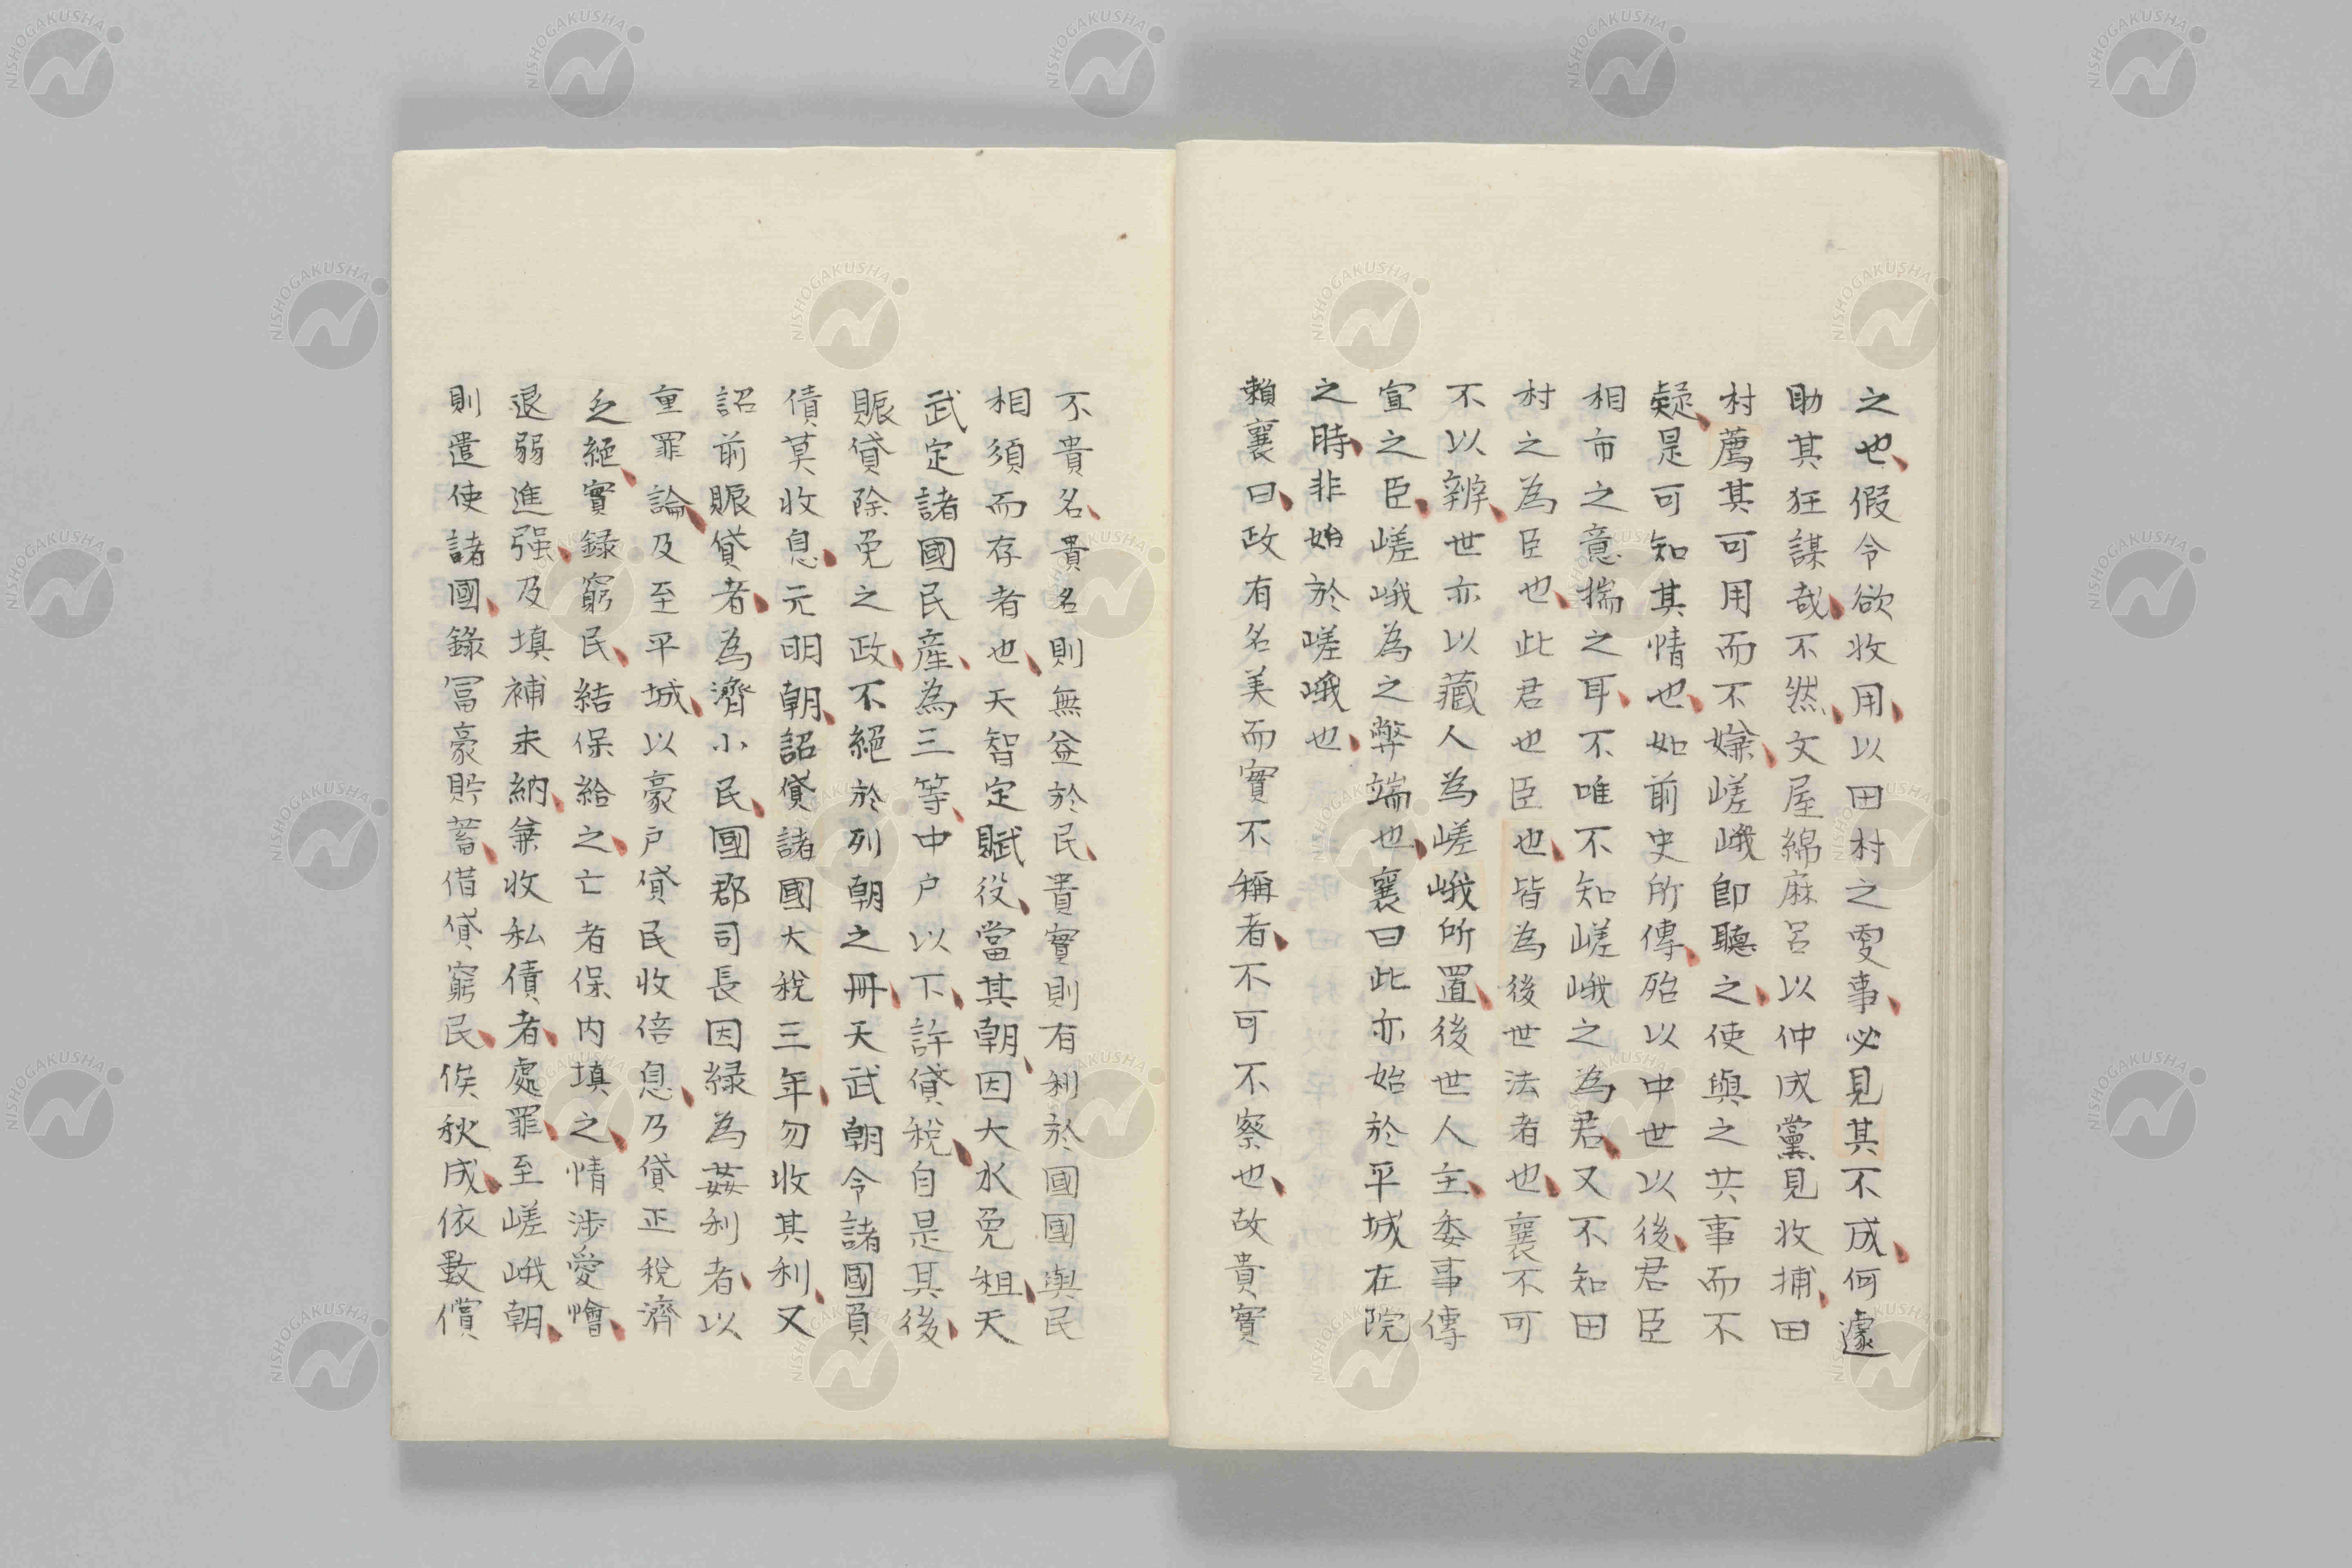 之也、假令欲收用、以田村之雯事、必見其不成、何遽
助其狂謀哉、不然、文屋綿麻呂以仲成黨見收捕、田
村薦其可用而不嫌、嵯峨卽聽之、使與之共事而不
疑、是可知其情也、如前史所傳、殆以中世以後、君臣
相市之意揣之耳、不唯不知嵯峨之為君、又不知田
村之為臣也、此君也臣也、皆為後世法者也、襄不可
不以辨、世亦以藏人為嵯峨所置、後世人主、委事傳
宣之臣、嵯峨為之弊端也、襄曰此亦始於平城在院
之時、非始於嵯峨也、
賴襄曰、政有名美而實不稱者、不可不察也、故貴實
不貴名、貴名則無益於民、貴實則有利於國國與民
相須而存者也、天智定賦役、當其朝、因大水免租、天
武定諸國民產、為三等、中户以下、許貸稅、自是其後、
賑貸除免之政、不絕於列朝之冊、天武朝令諸國負
債莫收息、元明朝、詔貸諸國大稅三年、勿收其利、又
詔前賑貸者、為濟小民、國郡司長因緑為姦利者、以
重罪論、及至平城、以豪户貸民收倍息、乃貸正稅濟
乏絕、實録窮民、結保給之、亡者保內填之、情涉愛憎、
退弱進强、及填補未納、兼收私債者、處罪、至嵯峨朝、
則遣使諸國、錄冨豪貯蓄、借貸窮民、俟秋成、依數償
NISHOGAKUSHA